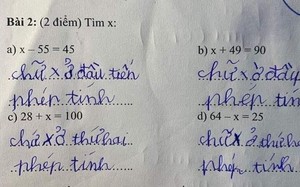 Bài 2: (2 điểm) Tìm x:
a) x – 55 = 45
b) x + 49 = 90
chữ x ở đầu tiên
chữ x ở đầy
phép tính
phép tín
c) 28 + x = 100
d) 64 – x = 25
chữ x ở thứ hai
chữ x ở thứ ha
phép tính
phép tính